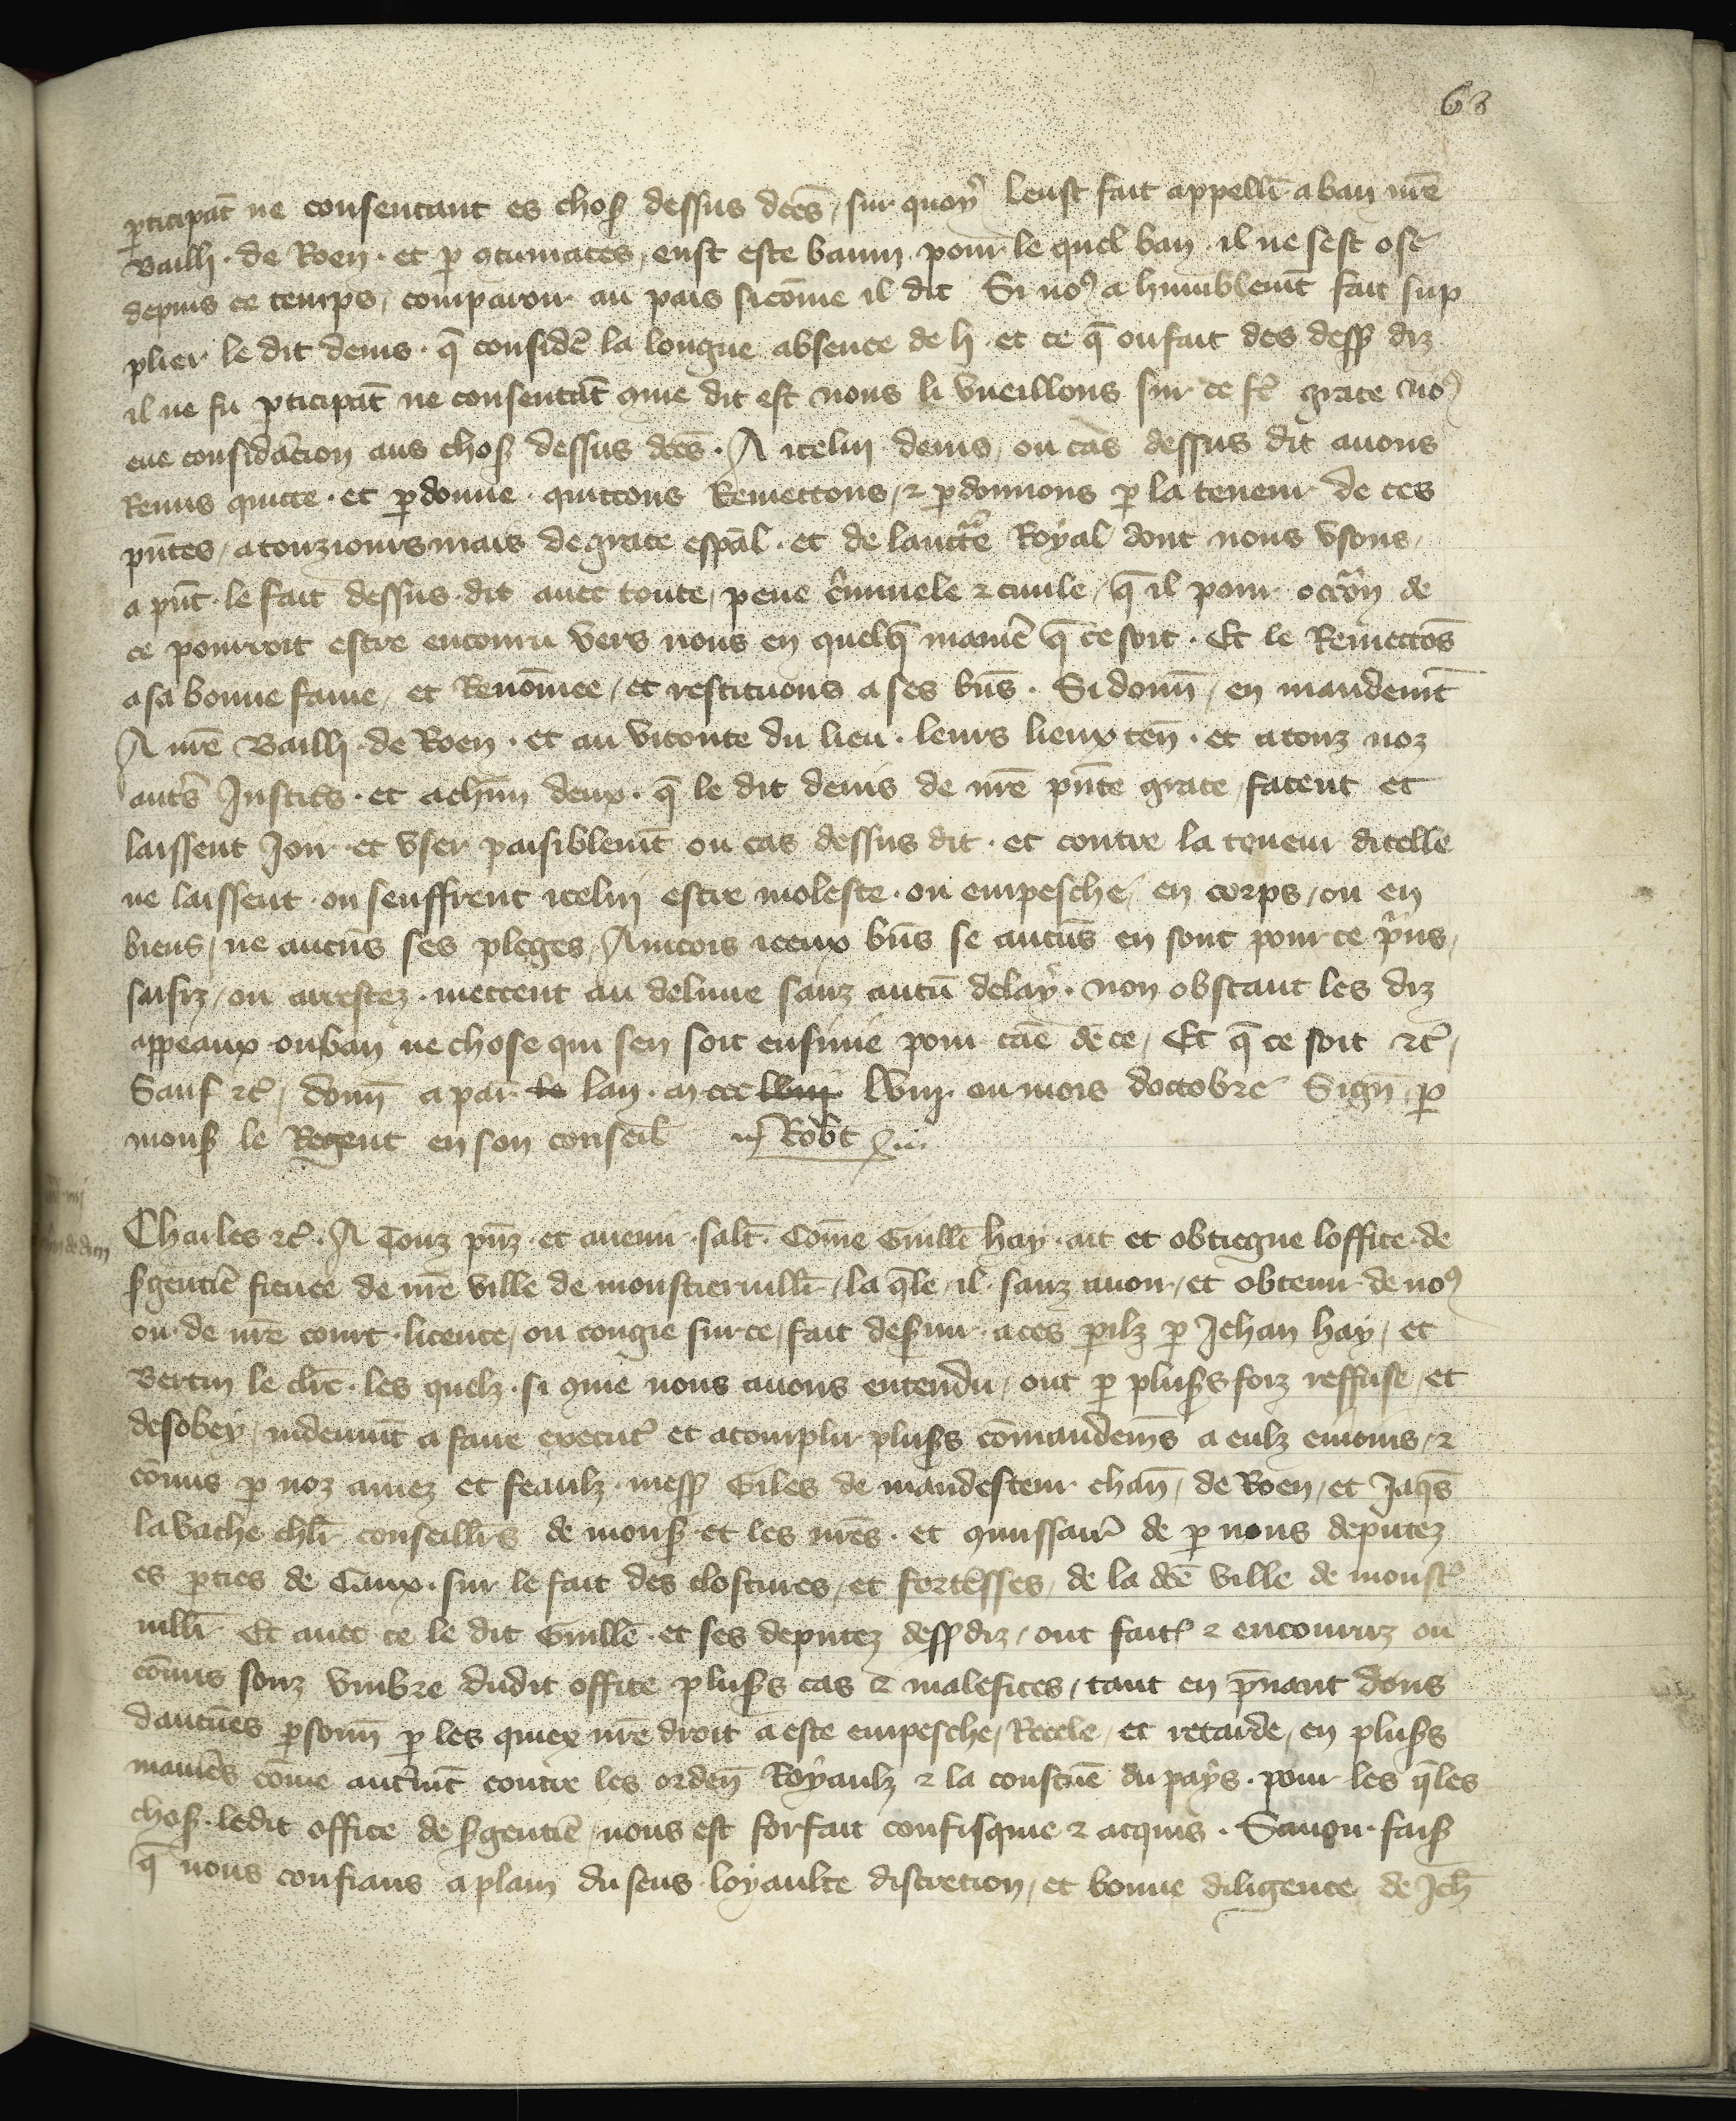 63
ꝑticipāt ne consentant es chos̃ dessus dc̃es, sur quoy leust fait appeller a ban nr̃e
Bailli · de Roen · et ꝑ ꝯtumaces, eust este banni pour le quel ban · il ne sest ose
depuis ce temps, comparoir au pais sicōme il dit Si noꝰ a humblem̄t fait sup
plier le dit denis · q̄ considē la longue absence de li · et ce q̄ ou fait des dess̃ diz
il ne fu ꝑticipāt ne consentāt ꝯme dit est nous li vueillons sur ce fẽ grace noꝰ
eue consid̃acion aus chos̃ dessus dc̃es · A icelui denis, ou cas dessus dit auons
Remis quitte · et ꝑdonne · quittons Remettons, ⁊ ꝑdonnons ꝑ la teneur de ces
pñtes, a touziours mais de grace esp̄al · et de lauctẽ Royal dont nous vsons,
a pñt · le fait dessus dit auec toute, peine c̃iminele ⁊ ciuile, q̄ il pour occõn de
ce pourroit estre encouru vers nous en quelq̄ manie͂ q̄ ce soit · Et le Remettōs
a sa bonne fame, et Renōmee, et restituons a ses bn̄s · Si donn̄, en mandem̄t
A nr̃e Bailli · de Roen · et au viconte du lieu · leurs lieux ten̄ · et a touz noz
autr̃s Justic̃s · et a chūn deux · q̄ le dit denis de nr̃e pñte grace, facent et
laissent Joir · et vser paisiblem̄t ou cas dessus dit · et contre la teneur dicelle
ne laissent · ou seuffrent icelui estre moleste · ou empesche, en corps, ou en
biens, ne aucūs ses pleges, Aincois iceux bn̄s se aucūs en sont pour ce p̃ns,
saisiz, ou arrestez · mettent au deliure sanz aucū delay · non obstant les diz
appeaux ou ban ne chose qui sen soit ensiuie pour cāe de ce, Et q̄ ce soit ⁊c̃,
Sauf ⁊c̃, donn̄ a par̄ le lan · m ccc lviij lviij · ou mois doctobre Sign̄ · ꝑ
mons̃ le Regent en son conseil Rob̃t
Charles ⁊c̃ · A Touz pn̄z · et auenir · salt̃ · Cōme Guill̃e hay · ait et obtiegne loffice de
s̃gentiẽ fieuee de nr̃e ville de monstieruill̃r, la q̄le, il · sanz auoir, et obtenir de noꝰ
ou de nr̃e court · licence, ou congie sur ce, fait des̃uir · a ces pilz ꝑ Jehan hay, et
Bertin le clr̃c · les quelz · si ꝯme nous auons entendu, ont ꝑ plus̃s foiz reffuse, et
desobey, indeuem̄t a faire execut̃ et acomplir plus̃s cōmandem̄s a eulz enioins, ⁊
cōmis ꝑ noz amez et feaulz · mess̃ Giles de maudestour chan̄, de Roen, et Jaq̄s
lavache chl̃r conseill̃rs de mons̃ et les nr̃es · et ꝯmissair̃ de ꝑ nous deputez
es ꝑties de Caux · sur le fait des clostures, et fort̃esses, de la dc̃e ville de monst̃
uill̃r Et auec ce le dit Guill̃e · et ses deputez dess̃ diz, ont fait ⁊ encouruz ou
cōmis souz vmbre dudit office plus̃s cas ⁊ malefices, tant en p̃nant dons
daucūes ꝑsonn̄ ꝑ les quiex nr̃e droit a este empesche, Recele, et retarde, en plus̃s
manier̃s cōme autr̃m̄t contre les orden̄ Royaulz ⁊ la coustūe du pays · pour les q̄les
chos̃ · ledit office de s̃gentiẽ, nous est forfait confisquie ⁊ acquis · Sauoir · fais̃
q̄ nous confians a plain du sens loyaulte discretion, et bonne diligence de Jeh̃